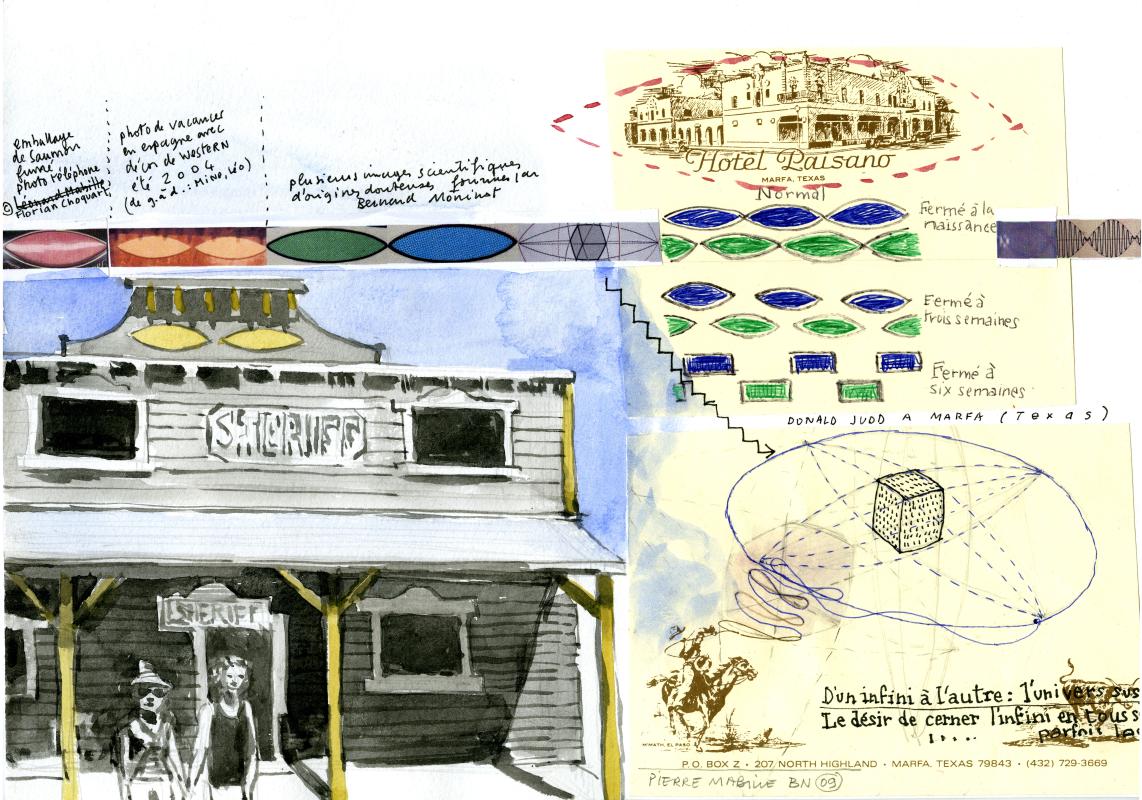 emballage
de saumon
fumé
photo téléphone
©
Florian Choquart
photo de vacances
en espagne avec
décor de WESTERN
été 2004
(de g. à d. : Mino, Léo)
plusieurs images scientifiques
d'origines douteuses fournies par
Bernard Moninot
Hotel Paisano
MARFA, TEXAS
Normal
Fermé à la
naissance
Fermé à
trois semaines
Fermé à
six semaines
DONALD JUDD A MARFA (Texas)
SHERIFF
SHERIFF
D'un infini à l'autre : l'univers sus
Le désir de cerner l'infini en tous s
parfois
M'MATH, EL PASO
P.O. BOX Z • 207 NORTH HIGHLAND • MARFA, TEXAS 79843 • (432) 729-3669
PIERRE MABILLE BN 09